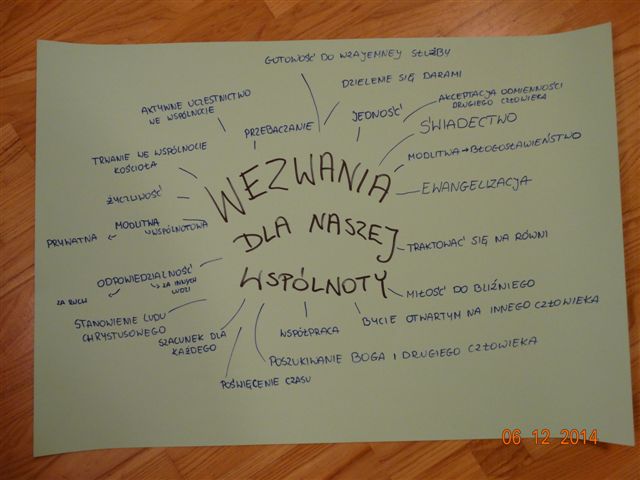 GOTOWOŚĆ DO WZAJEMNEJ SŁUŻBY
DZIELENIE SIĘ DARAMI
AKTYWNE UCZESTNICTWO
WE WSPÓLNOCIE
PRZEBACZANIE
JEDNOŚĆ
AKCEPTACJA ODMIENNOŚCI
DRUGIEGO CZŁOWIEKA
ŚWIADECTWO
TRWANIE WE WSPÓLNOCIE
KOŚCIOŁA
MODLITWA → BŁOGOSŁAWIEŃSTWO
ŻYCZLIWOŚĆ
EWANGELIZACJA
MODLITWA
PRYWATNA
WSPÓLNOTOWA
WEZWANIA
DLA NASZEJ
WSPÓLNOTY
TRAKTOWAĆ SIĘ NA RÓWNI
ODPOWIEDZIALNOŚĆ
ZA INNYCH
LUDZI
ZA RUCH
MIŁOŚĆ DO BLIŹNIEGO
BYCIE OTWARTYM NA INNEGO CZŁOWIEKA
STANOWIENIE LUDU
CHRYSTUSOWEGO
SZACUNEK DLA
KAŻDEGO
WSPÓŁPRACA
POSZUKIWANIE BOGA I DRUGIEGO CZŁOWIEKA
POŚWIĘCENIE CZASU
06 12 2014